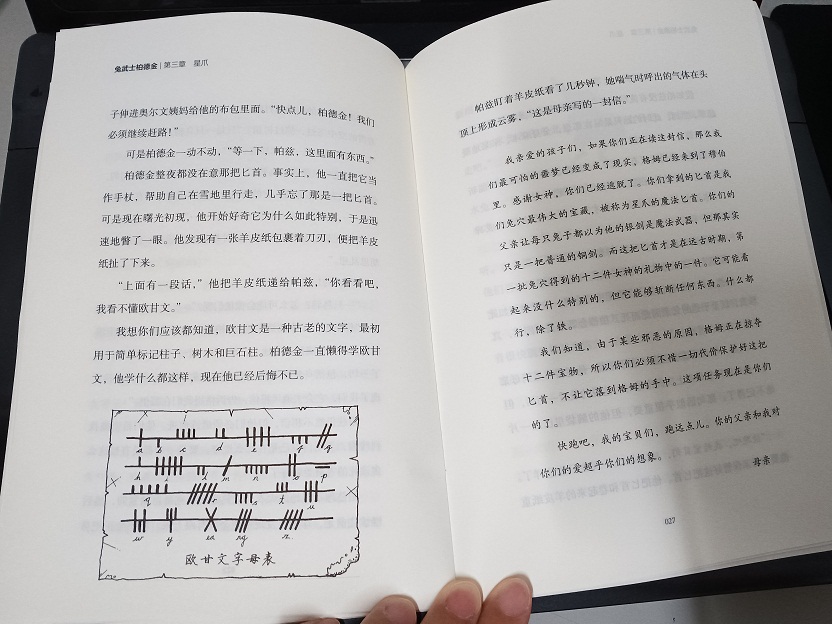 兔武士柏德金 | 第三章 星爪
子伸进奥尔文姨妈给他的布包里面。“快点儿，柏德金！我们
必须继续赶路！”
可是柏德金一动不动，“等一下，帕兹，这里面有东西。”
柏德金整夜都没在意那把匕首。事实上，他一直把它当
作手杖，帮助自己在雪地里行走，几乎忘了那是一把匕首。
可是现在曙光初现，他开始好奇它为什么如此特别，于是迅
速地瞥了一眼。他发现有一张羊皮纸包裹着刀刃，便把羊皮
纸扯了下来。
“上面有一段话，”他把羊皮纸递给帕兹，“你看看吧，
我看不懂欧甘文。”
我想你们应该都知道，欧甘文是一种古老的文字，最初
用于简单标记柱子、树木和巨石柱。柏德金一直懒得学欧甘
文，他学什么都这样，现在他已经后悔不已。
a b c d e f g
h i k m n o p
q r s t u
w y ea ng z
欧甘文字母表
帕兹盯着羊皮纸看了几秒钟，她喘气时呼出的气体在头
顶上形成云雾，“这是母亲写的一封信。”
我亲爱的孩子们，如果你们正在读这封信，那么我
们最可怕的噩梦已经变成了现实。格姆已经来到了穆伯
里。感谢女神，你们已经逃脱了。你们拿到的匕首是我
们兔穴最伟大的宝藏，被称为星爪的魔法匕首。你们的
父亲让每只兔子都以为他的银剑是魔法武器，但那其实
只是一把普通的铜剑。而这把匕首才是在远古时期，第
一批兔穴得到的十二件女神的礼物中的一件。它可能看
起来没什么特别的，但它能够斩断任何东西。什么都
行，除了铁。
我们知道，由于某些邪恶的原因，格姆正在掠夺
十二件宝物，所以你们必须不惜一切代价保护好这把
匕首，不让它落到格姆的手中。这项任务现在是你们
的了。
快跑吧，我的宝贝们，跑远点儿。你的父亲和我对
你们的爱超乎你们的想象。
母亲
027